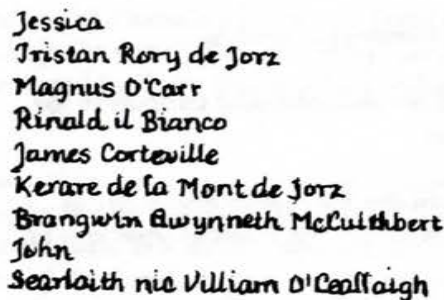 Jessica
Tristan Rory de Jorz
Magnus O'Carr
Rinald il Bianco
James Corteville
Kerare de la Mont de Jorz
Brangwin Gwynneth McCuithbert
John
Searlaith nic Villiam O'Ceallaigh